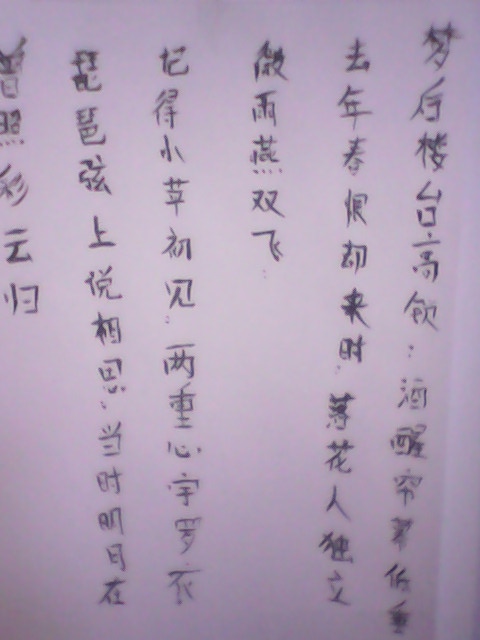 梦后楼台高锁：酒醒帘幕低垂
去年春恨却来时：落花人独立
微雨燕双飞：
记得小苹初见：两重心字罗衣
琵琶弦上说相思：当时明月在
曾照彩云归